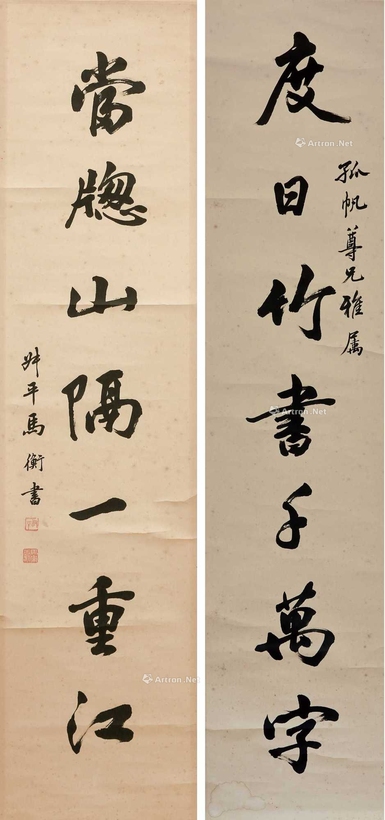 度日竹書千萬字
孤帆尊兄雅屬
當牕山隔一重江
叔平馬衡書
Artron.Net
Artron.Net
Artron.Net